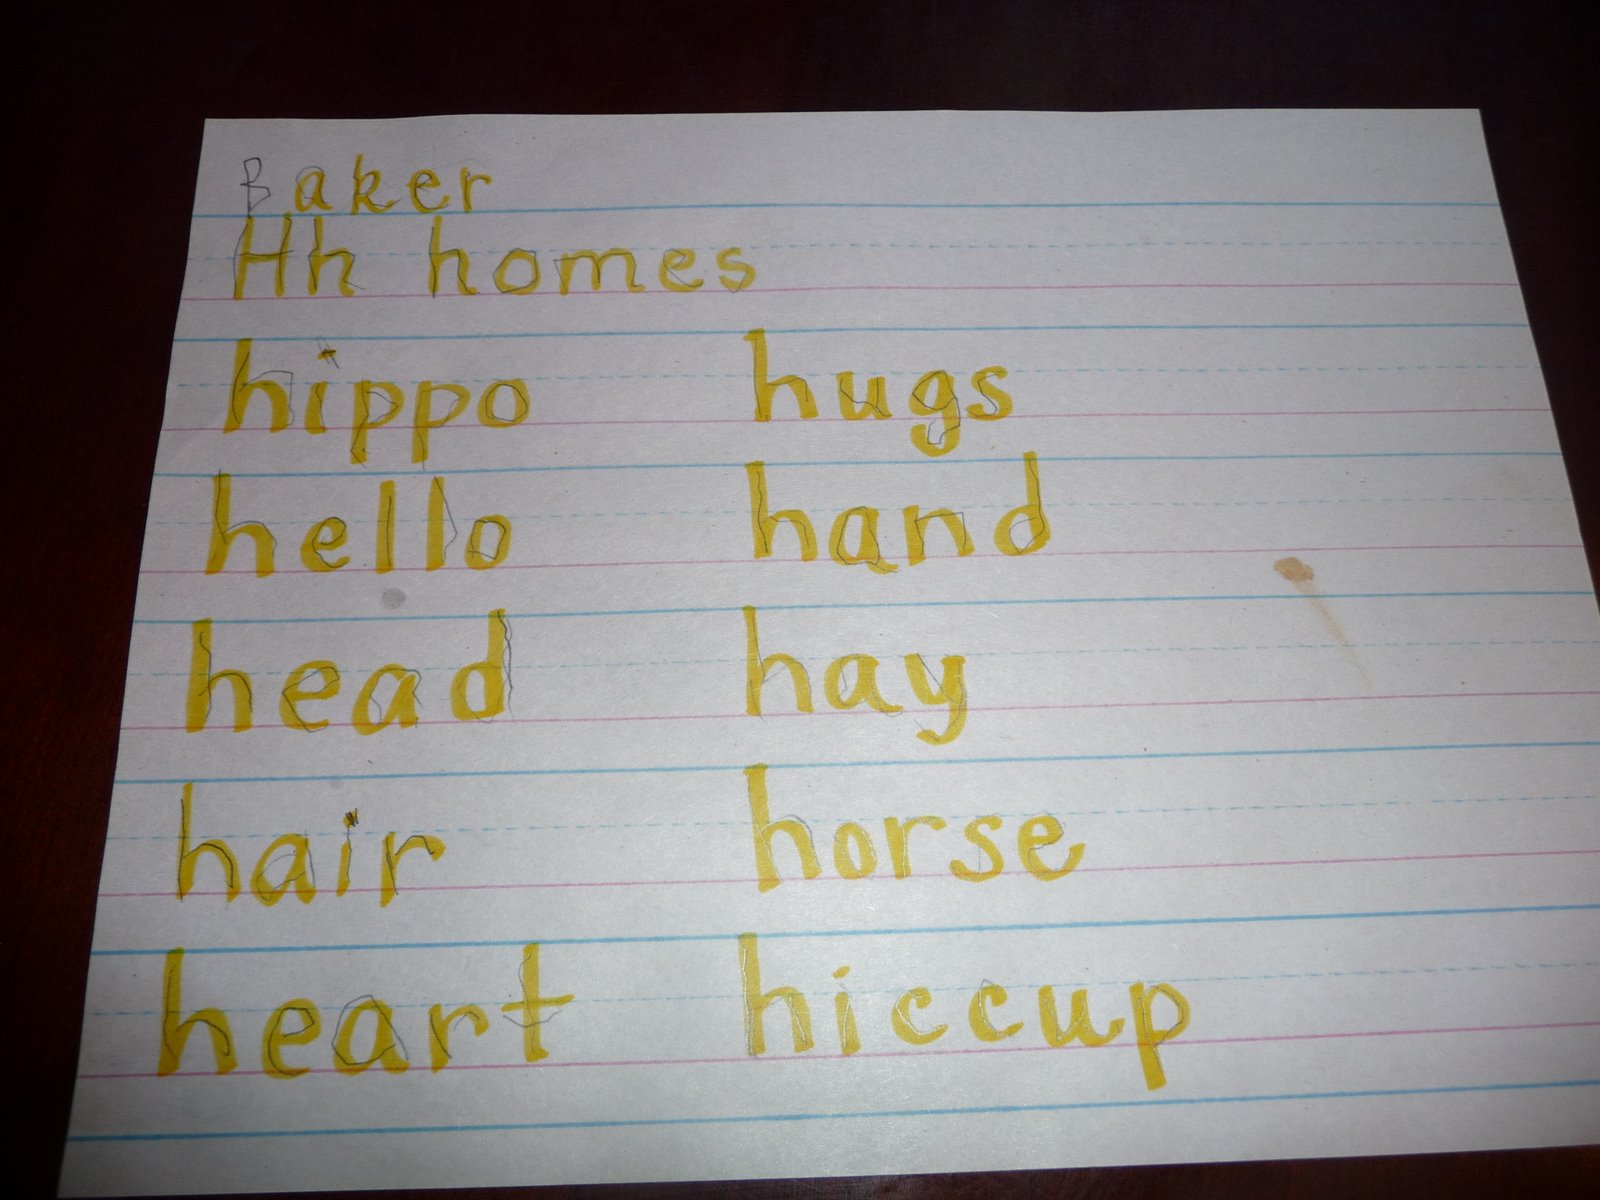 Baker
Hh homes
hippo hugs
hello hand
head hay
hair horse
heart hiccup